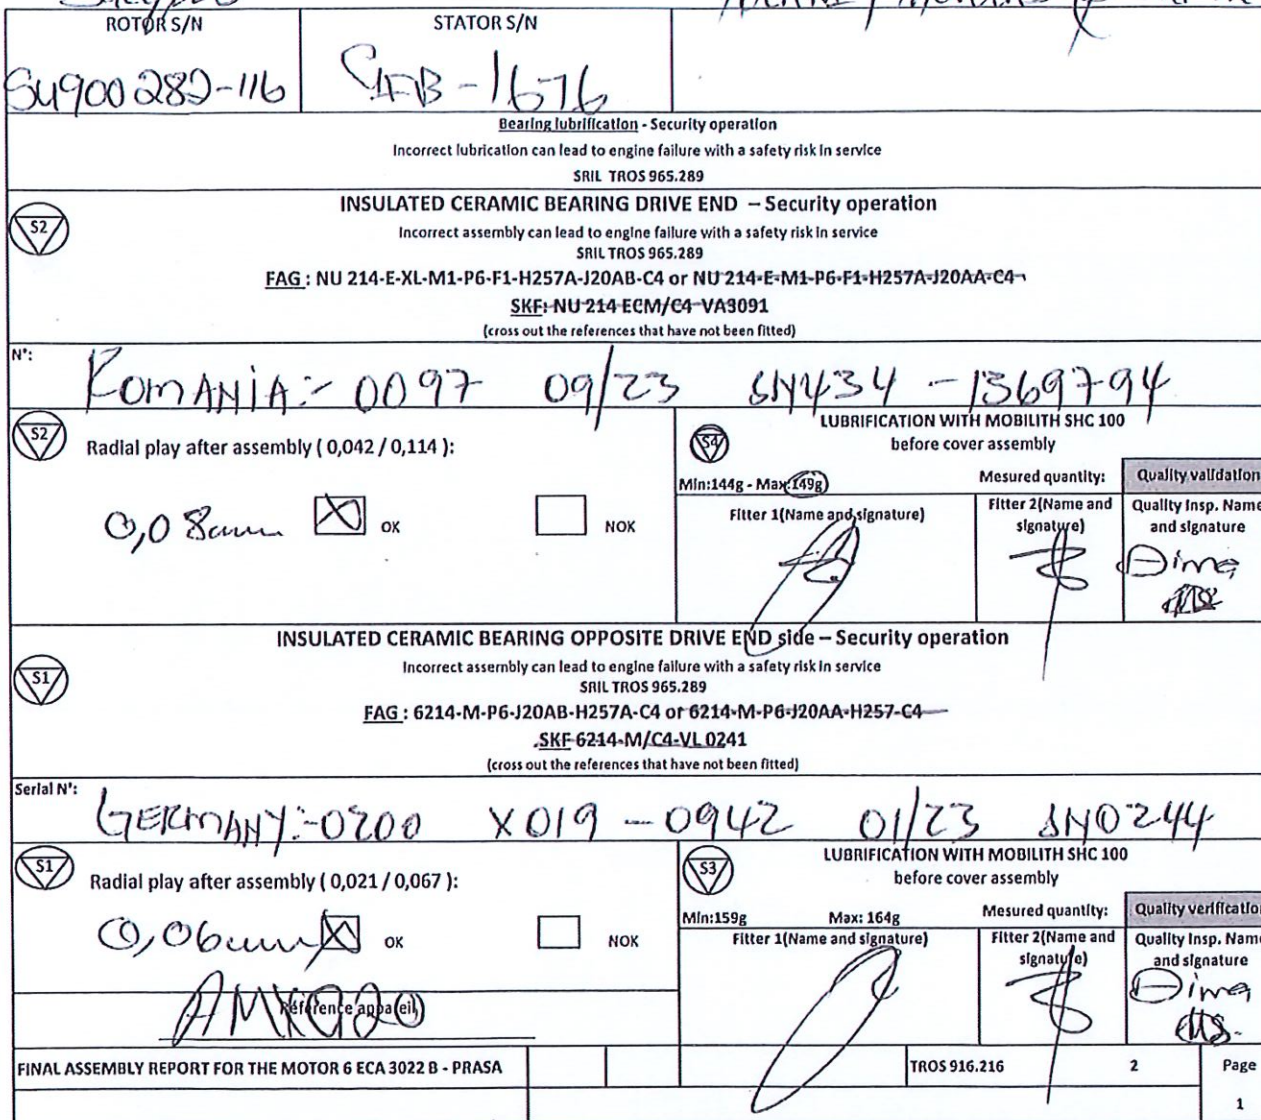 ROTOR S/N
STATOR S/N
SU900282-116
-1676
Bearing lubrification - Security operation
Incorrect lubrication can lead to engine failure with a safety risk in service
SRIL TROS 965.289
S2
INSULATED CERAMIC BEARING DRIVE END – Security operation
Incorrect assembly can lead to engine failure with a safety risk in service
SRIL TROS 965.289
FAG : NU 214-E-XL-M1-P6-F1-H257A-J20AB-C4 or NU 214-E-M1-P6-F1-H257A-J20AA-C4
SKF: NU 214 ECM/C4-VA3091
(cross out the references that have not been fitted)
N°:
ROMANIA:- 0097 09/23 SN434 -1369794
S2
Radial play after assembly ( 0,042 / 0,114 ):
0,08mm
OK
NOK
S4
LUBRIFICATION WITH MOBILITH SHC 100
before cover assembly
Min:144g - Max:149g
Mesured quantity:
Quality validation
Fitter 1(Name and signature)
Fitter 2(Name and signature)
Quality Insp. Name and signature
Dima
INSULATED CERAMIC BEARING OPPOSITE DRIVE END side – Security operation
S1
Incorrect assembly can lead to engine failure with a safety risk in service
SRIL TROS 965.289
FAG : 6214-M-P6-J20AB-H257A-C4 or 6214-M-P6-J20AA-H257-C4
SKF 6214-M/C4-VL 0241
(cross out the references that have not been fitted)
Serial N°:
GERMANY:-0200 X019 -0942 01/23 SN0244
S1
Radial play after assembly ( 0,021 / 0,067 ):
0,06mm
OK
NOK
Référence appareil)
S3
LUBRIFICATION WITH MOBILITH SHC 100
before cover assembly
Min:159g
Max: 164g
Mesured quantity:
Quality verificatio
Fitter 1(Name and signature)
Fitter 2(Name and signature)
Quality Insp. Name and signature
Dima
FINAL ASSEMBLY REPORT FOR THE MOTOR 6 ECA 3022 B - PRASA
TROS 916.216
2
Page
1